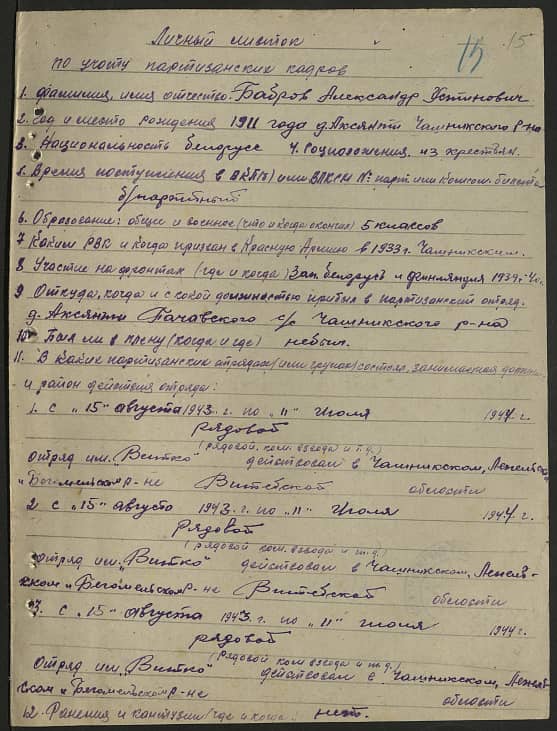 15 15
Личный листок
по учоту партизанских кадров
1. фамилия, имя отчество. Бабров Александр Устинович
2. Год и место рождения 1911 года д. Аксянти Чашникского р-на
3. Национальность белорусс 4. Соцположения. из крестьян.
5. Время поступления в ВКП(б) или ВЛКСМ № парт. или комсом. билета
б/партийный
6. Образование: общее и военное (что и когда окончил) 5 классов
7 Каким РВК и когда призван в Красную Армию в 1933 г. Чашникским.
8 Участие на фронтах (где и когда) Зап. белорусь и финляндия 1939-40.
9 Откуда, когда и с какой должностью прибыл в партизанский отряд.
д. Аксянти Почавского с/с Чашникского р-на
10 Был ли в плену (когда и где) небыл.
11. В каких партизанских отрядах (или группах) состоял, занимаемая должн.
и район действия отряда:
1. с "15" августа 1943 г. по "11" Июля 1944 г.
рядовой
(рядовой, ком. взвода и т.д.)
отряд им. "Витко" действовал в Чашникском, Лепельск
"Бегомельском р-не Витебской области
2 с "15" августа 1943 г. по "11" Июля 1944 г.
рядовой
(рядовой ком. взвода и т.д.)
отряд им. "Витко" действовал в Чашникском, Лепель-
ском и Бегомельском р-не Витебской области
3. с "15" августа 1943 г. по "11" июля 1944 г.
рядовой
(рядовой ком взвода и т.д.)
Отряд им. "Витко" действовал в Чашникском, Лепель
ском и Бегомельском р-не области
12. Ранения и контузии (где и когда). нет.